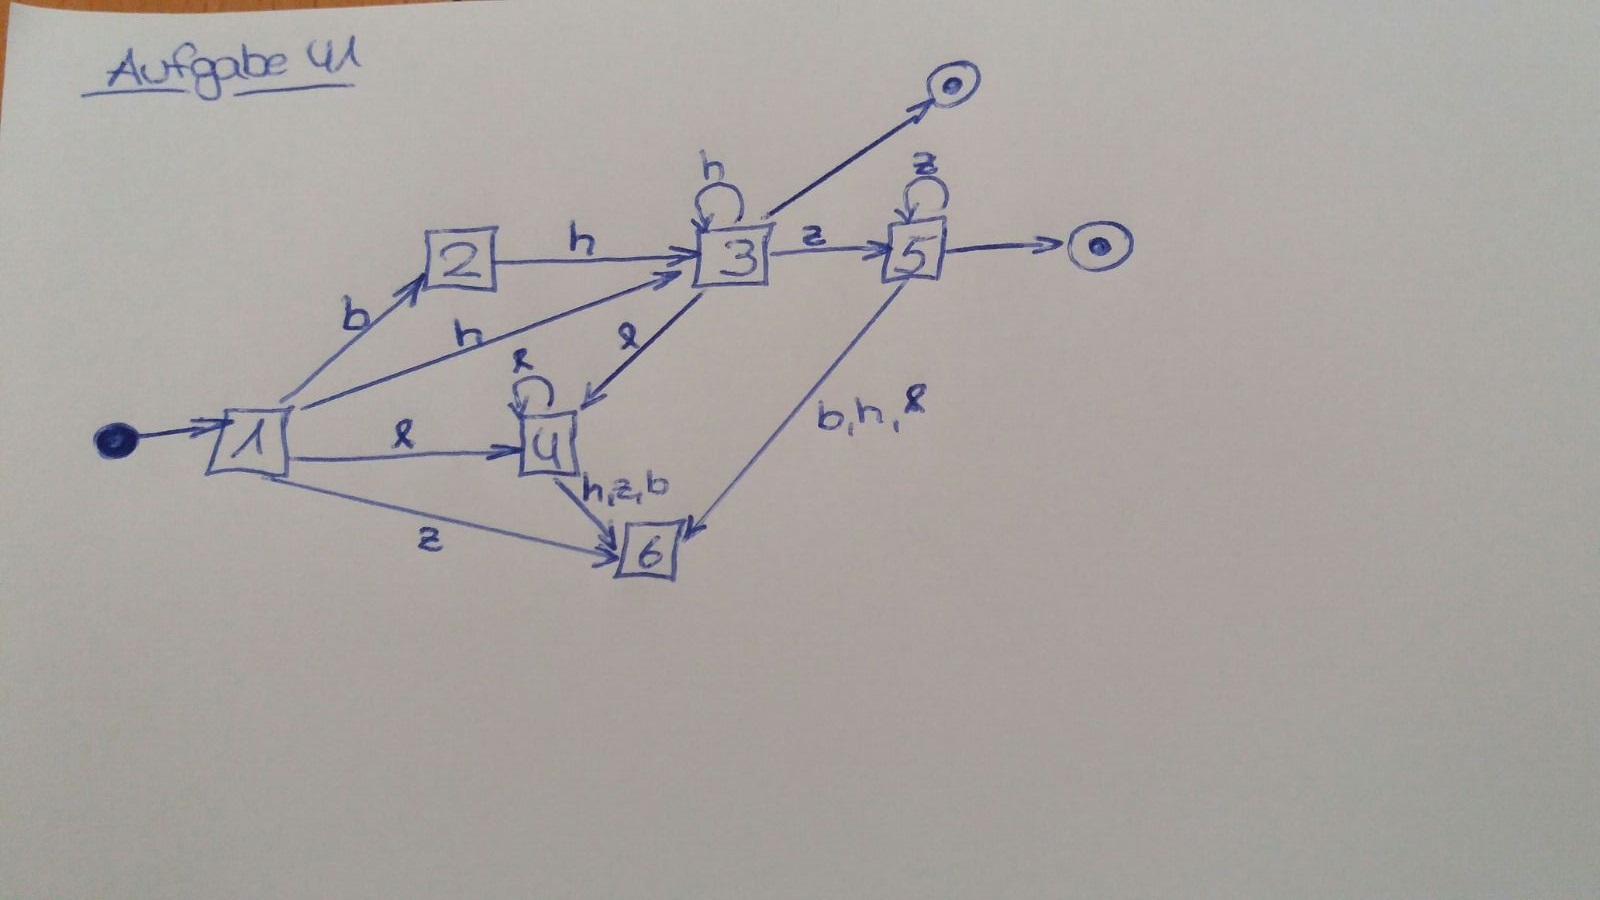 Aufgabe 41
h
z
2
h
3
z
5
b
h
l
l
b,h,l
1
l
4
h,z,b
z
6